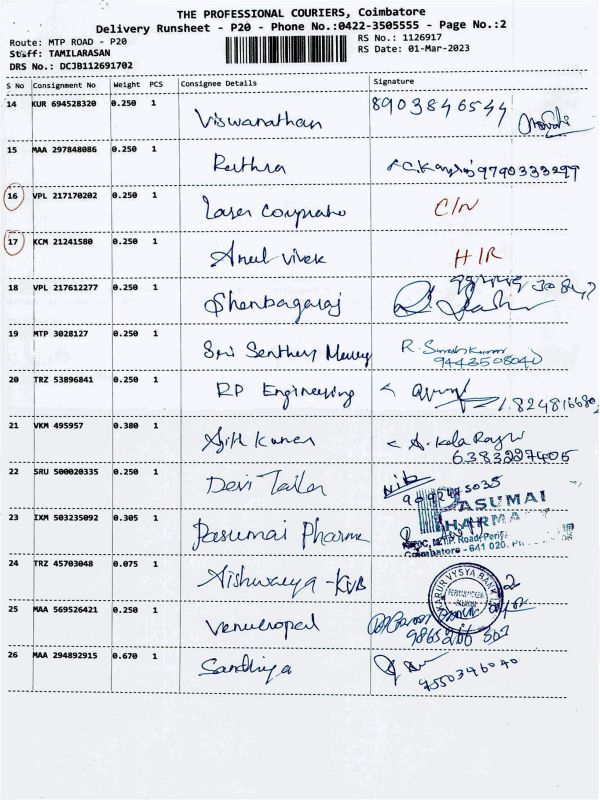 THE PROFESSIONAL COURIERS, Coimbatore
Delivery Runsheet - P20 - Phone No.:0422-3505555 - Page No.:2
Route: MTP ROAD - P20
RS No.: 1126917
Staff: TAMILARASAN
RS Date: 01-Mar-2023
DRS No.: DCJB112691702
S No Consignment No Weight PCS Consignee Details Signature
14 KUR 694528320 0.250 1 Viswanathan 8903846544
15 MAA 297848086 0.250 1 Ruthra 9790333299
16 VPL 217170202 0.250 1 Laser C/N
17 KCM 21241580 0.250 1 Arul Vivek H/R
18 VPL 217612277 0.250 1 Shenbagaraj
19 MTP 3028127 0.250 1 Sri Senthur R. Suresh Kumar
9443508040
20 TRZ 53896841 0.250 1 RP Engineering
21 VKM 495957 0.380 1 Ajith Kumar
6383227405
22 SRU 500020335 0.250 1 Devi Tailor
23 IXM 503235092 0.305 1 Pasumai Pharma PASUMAI
PHARMA
MTP Road, Periy
Coimbatore - 641 020.
24 TRZ 45703048 0.075 1 Aishwarya - KVB KARUR VYSYA BANK
25 MAA 569526421 0.250 1 Venugopal
26 MAA 294892915 0.670 1 Sandhiya
9550396040